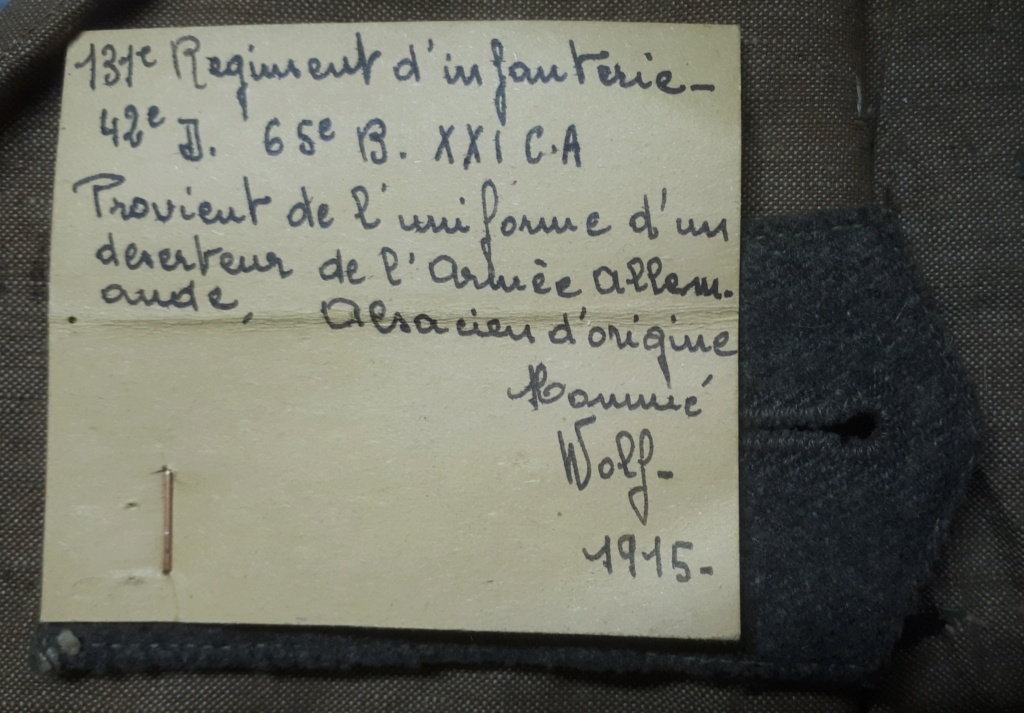 131e Regiment d'infanterie-
42e D. 65e B. XXI C.A
Provient de l'uniforme d'un
deserteur de l'Armèe Allem-
ande, Alsacien d'origine
Nommé
Wolf-
1915-